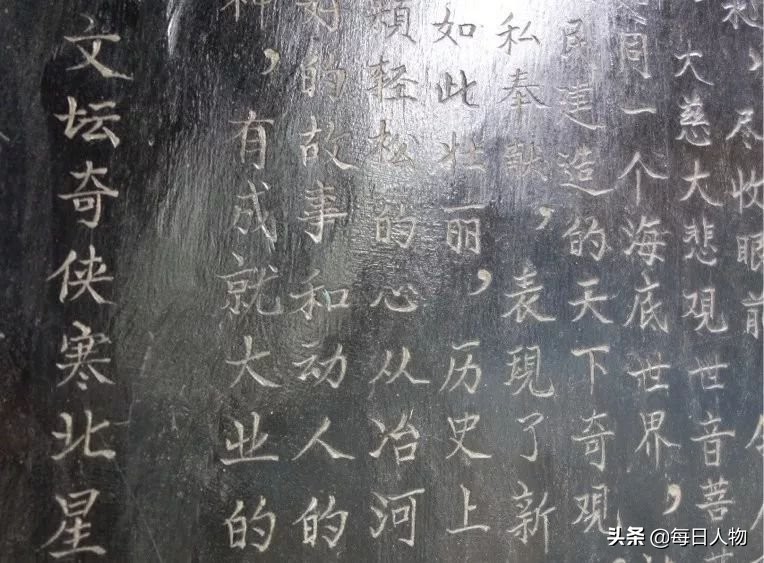 ，尽收眼前
大慈大悲观世音菩
同一个海底世界，
民建造的天下奇观
私奉献，表现了新
如此壮丽，历史上
轻松的心从冶河
好的故事和动人的
神，有成就大业的
文坛奇侠寒北星
头条 @每日人物